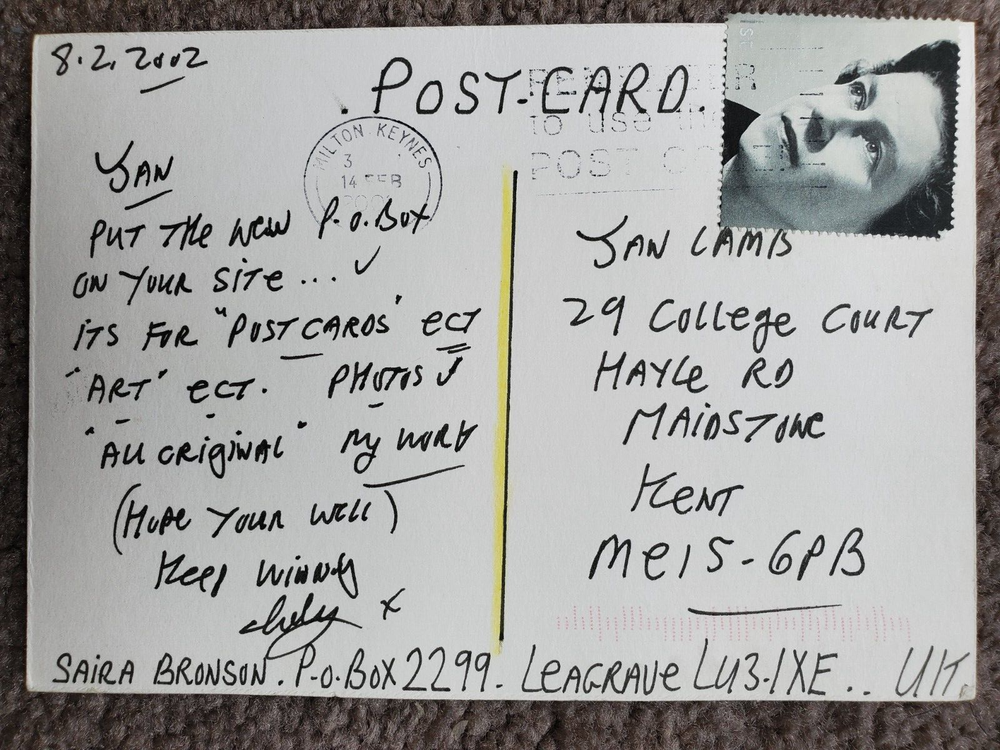 8.2.2002
. POST-CARD.
MILTON KEYNES
3
14 FEB
to use
POST CODE
JAN
PUT THE NEW P.O.BOX
ON YOUR SITE... ✓
ITS FOR "POSTCARDS" ECT
"ART" ECT. PHOTOS ✓
"ALL ORIGINAL" MY WORK
(HOPE YOUR WELL)
KEEP WINNING
X
JAN LAMB
29 COLLEGE COURT
HAYLE RD
MAIDSTONE
KENT
ME15-6PB
SAIRA BRONSON. P.O.BOX 2299. LEAGRAVE LU3.1XE.. U.K.